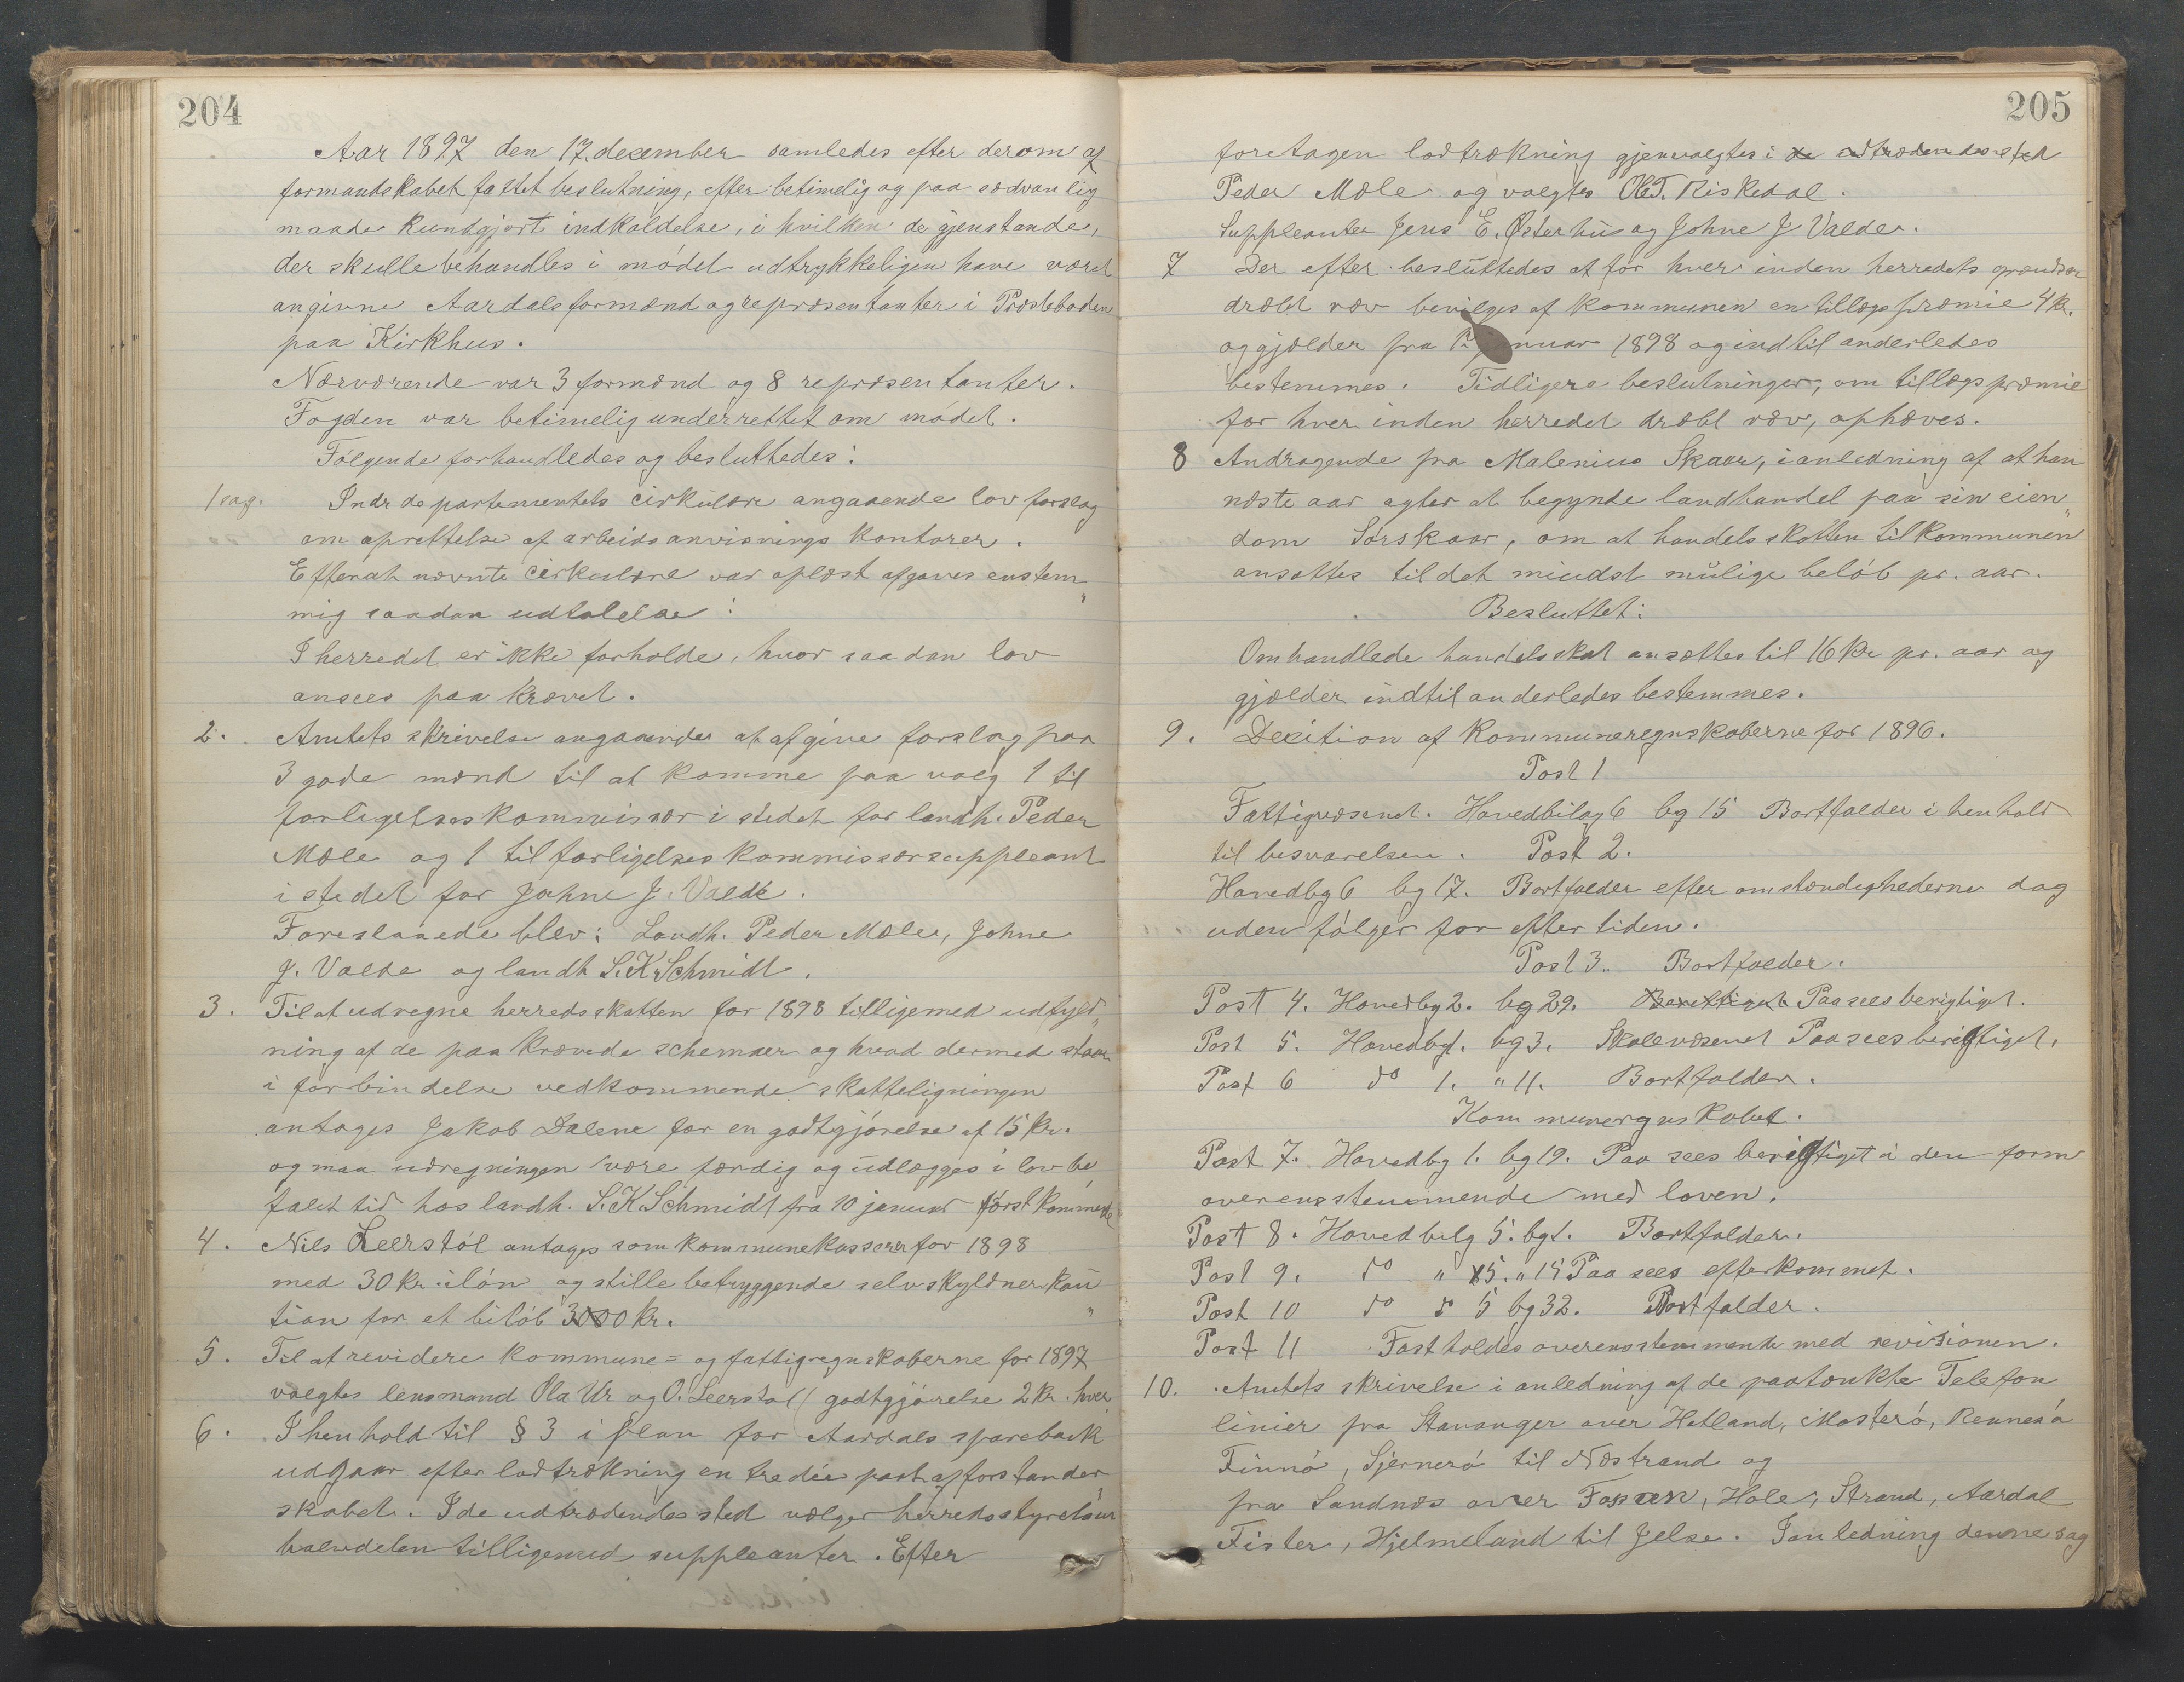 204
Aar 1897 den 17. december samledes efter derom af
formandskabet fattet beslutning, efter betimelig og paa sædvanlig
maade kundgjort indkaldelse, i hvilken de gjenstande,
der skulle behandles i mødet udtrykkeligen have været
angivne Aardals formænd og repræsentanter i Præsteboden
paa Kirkhus.
Nærværende var 3 formænd og 8 repræsentanter.
Fogden var betimelig underrettet om mødet.
Følgende forhandledes og besluttedes:
1 sag. Indr departementets cirkulære angaaende lov forslag
om oprettelse af arbeidsanvisnings kontorer.
Efterat nævnte cirkulære var oplæst afgaves enstem„
mig saadan udtalelse:
I herredet er ikke forholde, hvor saadan lov
ansees paa krævet.
2. Amtets skrivelse angaaende at afgive forslag paa
3 gode mænd til at komme paa valg 1 til
forligelseskommissær i stedet for landh. Peder
Mæle og 1 til forligelses kommissærsuppleant
i stedet for Johne J. Valde.
Foreslaaede blev: Landh. Peder Mæle, Johne
J. Valde og landh S. K. Schmidt.
3. Til at udregne herredsskatten for 1898 tilligemed udfyld„
ning af de paa krævede schemaer og hvad dermed staar
i forbindelse vedkommende skatteligningen
antages Jakob Dalene for en godtgjørelse af 15 kr.
og maa udregningen være færdig og udlægges i lov be„
falet tid hos landh. S. K. Schmidt fra 10 januar først kommende
4. Nils Leerstøl antages som kommunekasserer for 1898
med 30 kr. i løn og stille betryggende selvskyldner kau„
tion for et beløb 3000 kr.
5. Til at revidere kommune= og fattigregnskaberne for 1897
valgtes lensmand Ola Ur og O. Leerstøl (godtgjørelse 2 kr. hver
6. I henhold til § 3 i plan for Aardals sparebank
udgaar efter lodtrækning en tredie part af forstander„
skabet. I de udtrædendes sted vælger herredsstyrelsen
halvdelen tilligemed suppleanter. Efter
205
foretagen lodtrækning gjenvalgtes i de udtrædendes sted
Peder Mæle og valgtes Ole T. Riskedal.
Suppleanter Jens E. Østerhus og Johne J Valde.
7 Der efter besluttedes at for hver inden herredets grændser
dræbt ræv bevilges af kommunen en tillægspræmie 4 kr.
og gjælder fra 1. januar 1898 og indtil anderledes
bestemmes. Tidligere beslutninger, om tillægspræmie
for hver inden herredet dræbt ræv, ophæves.
8 Andragende fra Malenius Skaar, i anledning af at han
næste aar agter at begynde landhandel paa sin eien„
dom Sørskaar, om at handelsskatten til kommunen
ansættes til det mindst mulige beløb pr. aar.
Besluttet:
Omhandlede handelsskat ansættes til 16 kr pr. aar og
gjælder indtil anderledes bestemmes.
9. Decition af kommuneregnskaberne for 1896.
Post 1
Fattigvæsenet. Hovedbilag 6 bg 15 Bortfalder i henhold
til besvarelsen. Post 2.
Hovedbg 6 bg 17. Bortfalder efter omstændighederne dog
uden følger for eftertiden.
Post 3. Bortfalder.
Post 4. Hovedbg 2. bg 29. Berettiget Paasees berigtiget.
Post 5. Hovedbg 1. bg 3. Skolevæsenet Paasees berigtiget.
Post 6 do 1. " 11. Bortfalder.
Kommunergnskabet.
Post 7. Hovedbg 1. bg 19. Paa sees berigtiget i den form
overensstemmende med loven.
Post 8. Hovedbilg 5. bg 1. Bortfalder.
Post 9. do " 5. " 15 Paa sees efterkommet.
Post 10 do do 5 bg 32. Bortfalder.
Post 11 Fastholdes overensstemmende med revisionen.
10. Amtets skrivelse i anledning af de paatænkte Telefon
linier fra Stavanger over Hetland, Mosterø, Rennesø
Finnø, Sjernerø til Næstrand og
fra Sandnæs over Fossan, Hole, Strand, Aardal
Fister, Hjelmeland til Jelse. I anledning denne sag